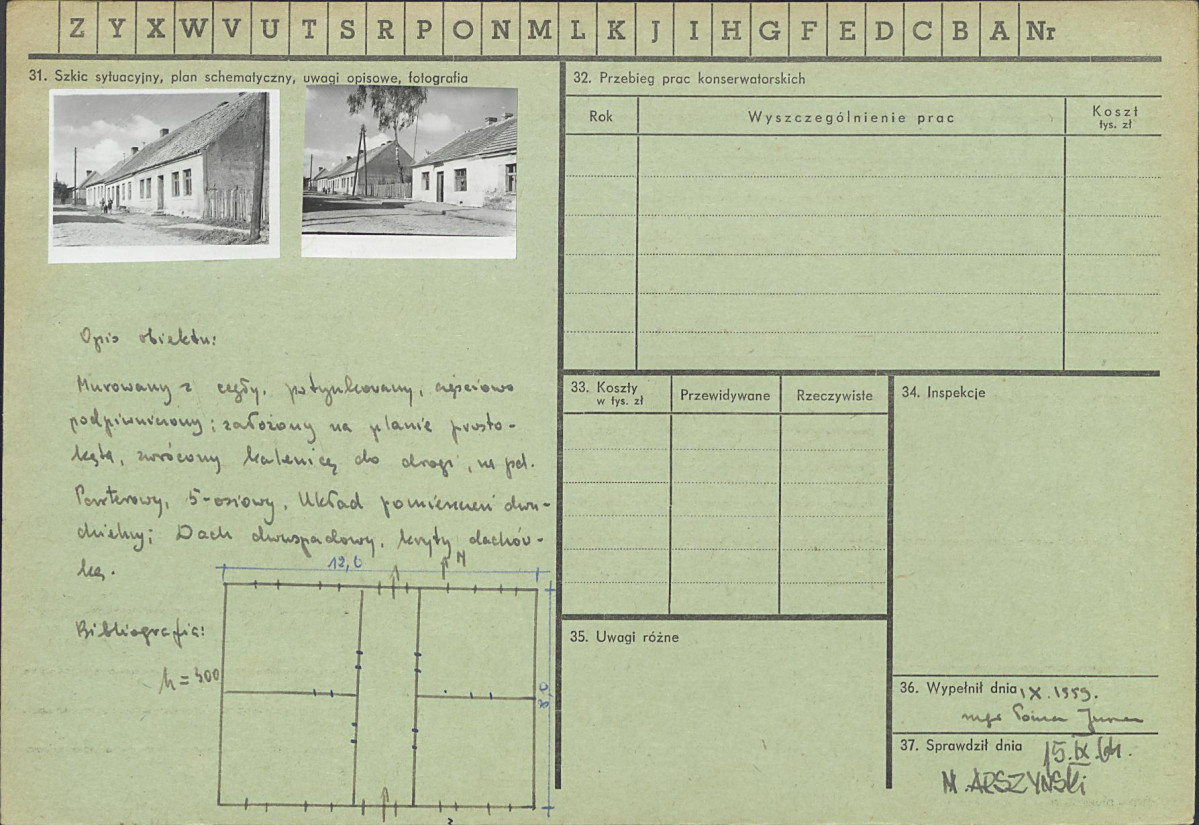 Z Y X W V U T S R P O N M L K J I H G F E D C B A Nr
31. Szkic sytuacyjny, plan schematyczny, uwagi opisowe, fotografia
Opis obiektu:
Murowany z cegły, potynkowany, częściowo
podpiwniczony; założony na planie prosto-
kąta, zwrócony kalenicą do drogi, na pd.
Parterowy, 5-osiowy. Układ pomieszczeń dwu-
dzielny; Dach dwuspadowy, kryty dachów-
ką.
12,6
N
Bibliografia:
h = 300
8,0
32. Przebieg prac konserwatorskich
Rok
Wyszczególnienie prac
Koszt
tys. zł
33. Koszty
w tys. zł
Przewidywane
Rzeczywiste
34. Inspekcje
35. Uwagi różne
36. Wypełnił dnia IX. 1959.
mgr
37. Sprawdził dnia 15.IX.64.
M. ARSZYŃSKI